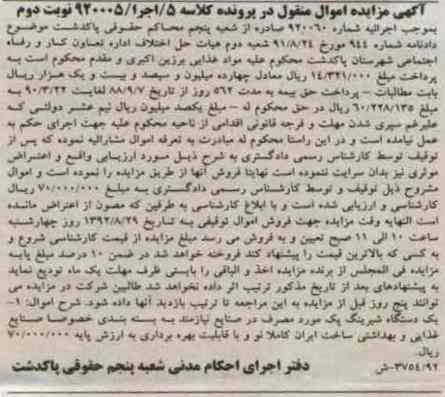 آگهی مزایده اموال منقول در پرونده کلاسه ۵/اجرا/۹۲۰۰۰۵ نوبت دوم
بموجب اجرائیه شماره ۹۲۰۰۶۰ صادره از شعبه پنجم محاکم حقوقی پاکدشت موضوع
دادنامه شماره ۹۴۴ مورخ ۹۱/۸/۲۴ شعبه دوم هیات حل اختلاف اداره تعاون کار و رفاه
اجتماعی شهرستان پاکدشت محکوم علیه مواد غذایی پرزین اکبری و مقدم محکوم است به
پرداخت مبلغ ۱۴/۳۲۱/۰۰۰ ریال معادل چهارده میلیون و سیصد و بیست و یک هزار ریال
بابت مطالبات – پرداخت حق بیمه به مدت ۵۶۲ روز از تاریخ ۸۸/۹/۷ لغایت ۹۰/۳/۲۲
مبلغ ۶۰/۲۲۸/۱۳۵ ریال در حق محکوم له – مبلغ یکصد میلیون ریال نیم عشر دولتی که
علیرغم سپری شدن مهلت و فرجه قانونی اقدامی از ناحیه محکوم علیه جهت اجرای حکم به
عمل نیامده است و در این راستا محکوم له مبادرت به تعرفه اموال مشارالیه نموده که پس از
توقیف توسط کارشناس رسمی دادگستری به شرح ذیل مورد ارزیابی واقع و اعتراض
موثری نیز بدان سرایت ننموده است نهایتا فروش آنها از طریق مزایده را نموده است و اموال
مشروح ذیل توقیف و توسط کارشناس رسمی دادگستری به مبلغ ۷۰/۰۰۰/۰۰۰ ریال
کارشناسی و ارزیابی شده است و با ابلاغ کارشناسی به طرفین که مصون از اعتراض مانده
است النهایه وقت مزایده جهت فروش اموال توقیفی به تاریخ ۱۳۹۲/۸/۲۹ روز چهارشنبه
ساعت ۱۰ الی ۱۱ صبح تعیین و به فروش می رسد مبلغ مزایده از قیمت کارشناسی شروع و
به کسی که بالاترین قیمت را پیشنهاد کند فروخته خواهد شد در ضمن ۱۰ درصد مبلغ پایه
مزایده فی المجلس از برنده مزایده اخذ و الباقی را بایستی ظرف مهلت یک ماه تودیع نماید
به پیشنهادهای بعد از تاریخ مذکور ترتیب اثر داده نخواهد شد طالبین شرکت در مزایده می
توانند پنج روز قبل از مزایده به این مراجعه تا ترتیب بازدید آنها داده شود. شرح اموال: ۱–
یک دستگاه شیرینگ پک مورد مصرف در صنایع نیازمند به بسته بندی خصوصا صنایع
غذایی و بهداشتی ساخت ایران کاملا نو و با قابلیت بهره برداری به ارزش پایه ۷۰/۰۰۰/۰۰۰
ریال.
۳۷۵۴/۹۲–ش دفتر اجرای احکام مدنی شعبه پنجم حقوقی پاکدشت